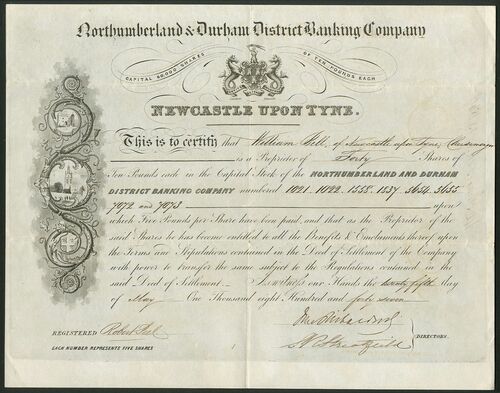 Northumberland & Durham District Banking Company
CAPITAL 80000 SHARES OF TEN POUNDS EACH
NEWCASTLE UPON TYNE.
This is to certify that William Bell, of Newcastle upon Tyne,
is a Proprietor of Forty Shares of
Ten Pounds each in the Capital Stock of the NORTHUMBERLAND AND DURHAM
DISTRICT BANKING COMPANY numbered 1021. 1022. 1558. 1837 3654. 3655
7972 and 7973 upon
which Five Pounds per Share have been paid, and that as the Proprietor of the
said Shares he has become entitled to all the Benefits & Emoluments thereof upon
the Terms and Regulations contained in the Deed of Settlement of the Company
with power to transfer the same subject to the Regulations contained in the
said Deed of Settlement. As witness our Hands the twenty fifth day
of May One Thousand eight Hundred and forty seven
REGISTERED Robert
DIRECTORS.
EACH NUMBER REPRESENTS FIVE SHARES